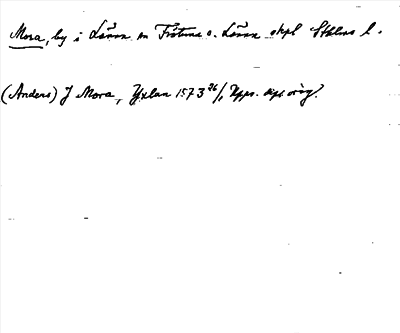 Mora, by i Länna sn Frötuna o. Länna skpl Sthlms l.
(Anders) J Mora, Yxlan 1573 26/1 Upps. dps orig.